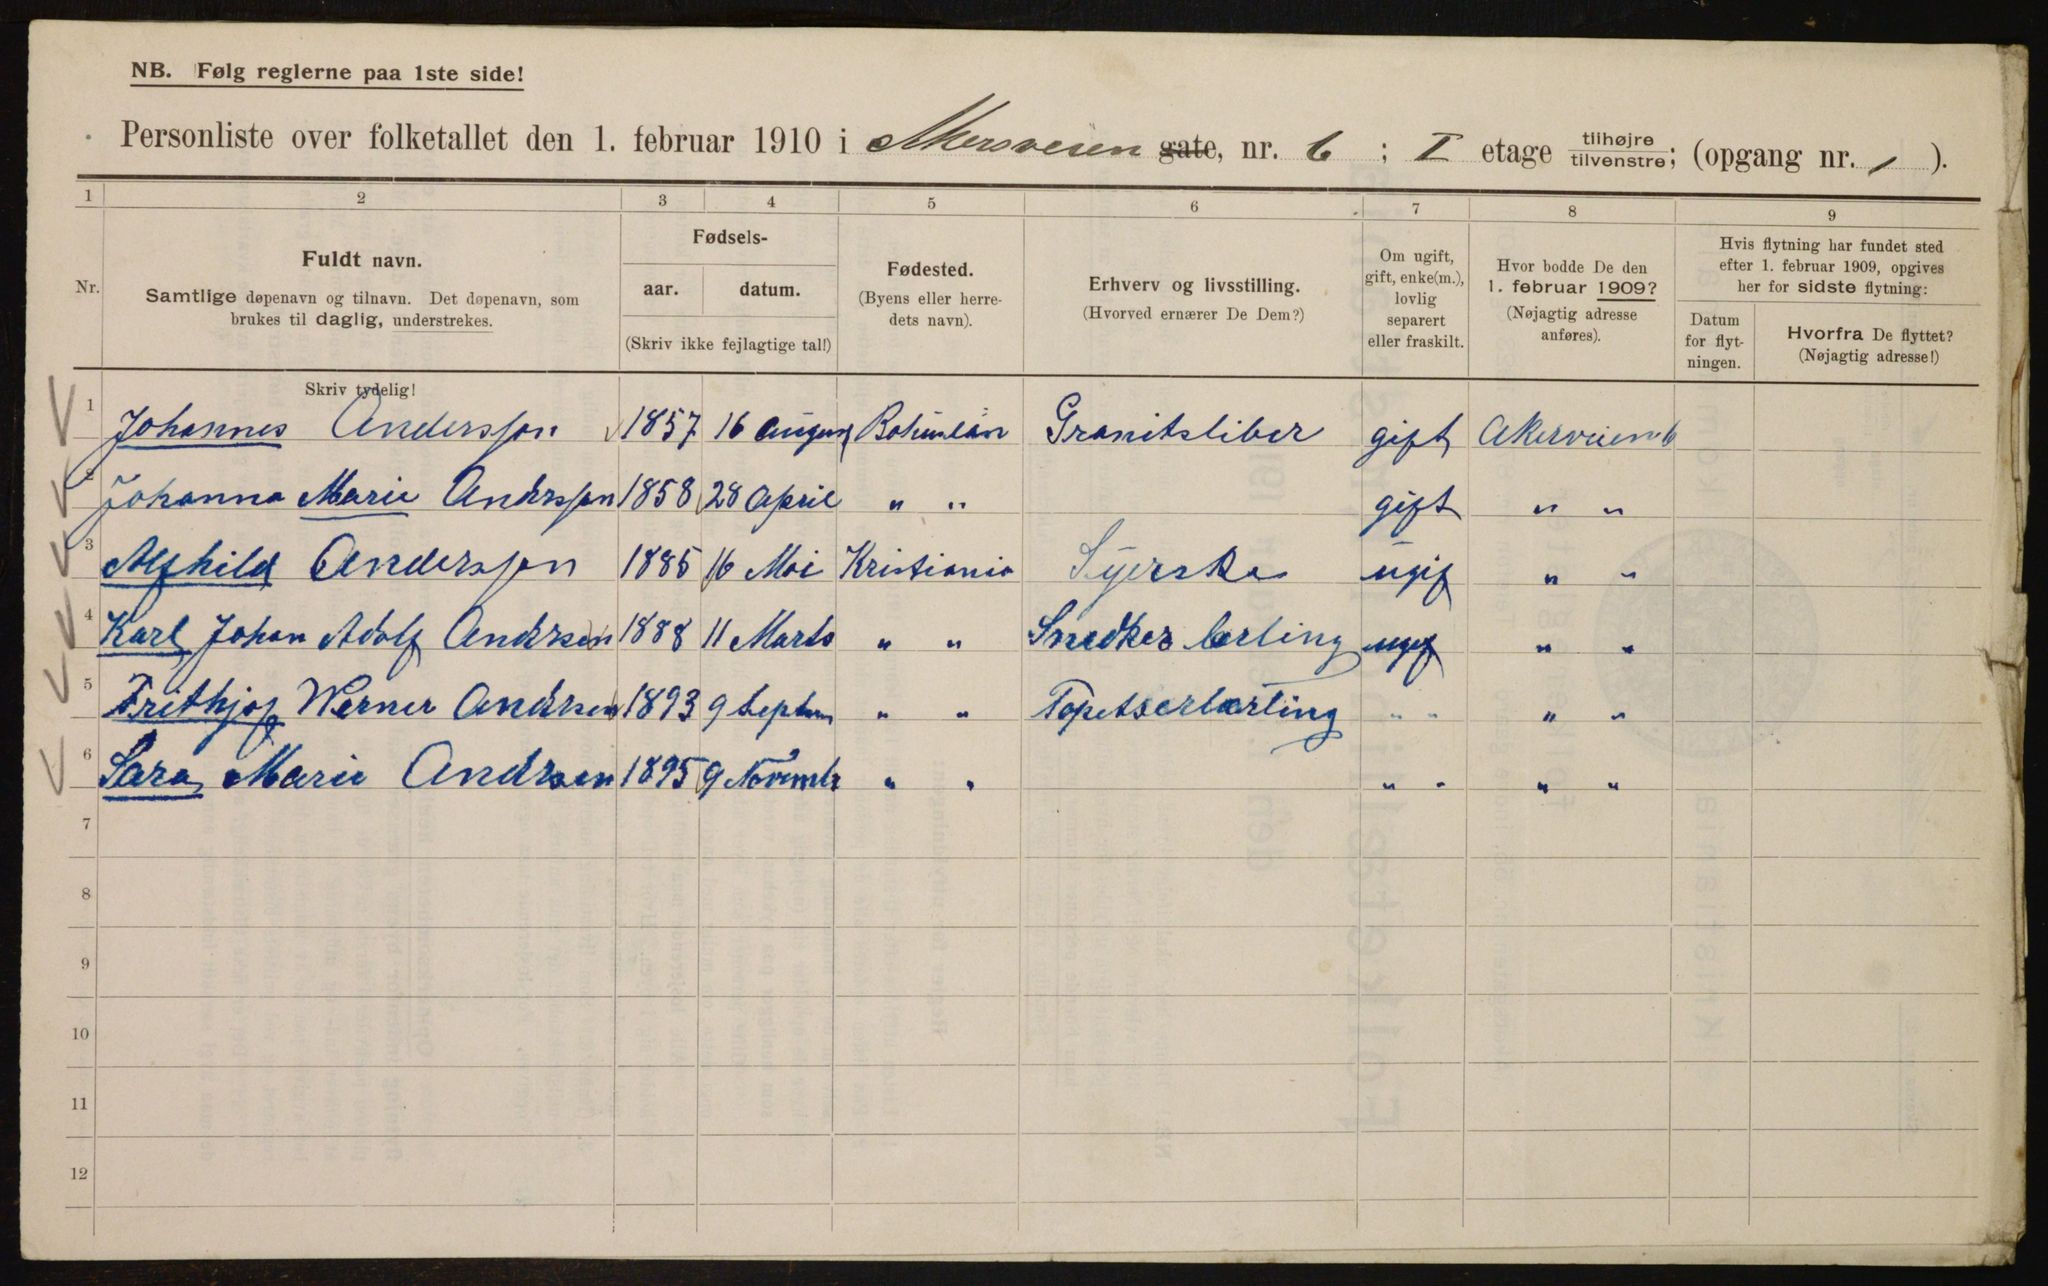 NB. Følg reglerne paa 1ste side!
Personliste over folketallet den 1. februar 1910 i Akersveien gate, nr. 6 ; I etage tilhøjre tilvenstre; (opgang nr. 1 ).
1 2 3 4 5 6 7 8 9
Nr.
Fuldt navn.
Samtlige døpenavn og tilnavn. Det døpenavn, som
brukes til daglig, understrekes.
Fødsels-
aar. datum.
(Skriv ikke fejlagtige tal!)
Fødested.
(Byens eller herre-
dets navn).
Erhverv og livsstilling.
(Hvorved ernærer De Dem?)
Om ugift,
gift, enke(m.),
lovlig
separert
eller fraskilt.
Hvor bodde De den
1. februar 1909?
(Nøjagtig adresse
anføres).
Hvis flytning har fundet sted
efter 1. februar 1909, opgives
her for sidste flytning:
Datum
for flyt-
ningen.
Hvorfra De flyttet?
(Nøjagtig adresse!)
Skriv tydelig!
1 Johannes Andersson 1857 16 August Bohuslän Granitsliber gift Akerveien 6
2 Johanna Marie Andrsson 1858 28 April " " gift " "
3 Alfhild Andersson 1885 16 Mai Kristiania Syerske ugif " "
4 Karl Johan Adolf Andrsen 1888 11 Marts " " Snedker lærling ugif " "
5 Frithjof Werner Andrsen 1893 9 Septem " " Tapetserlærling " " " "
6 Sara Marie Andrsen 1895 9 Novembr " " " " " "
7
8
9
10
11
12